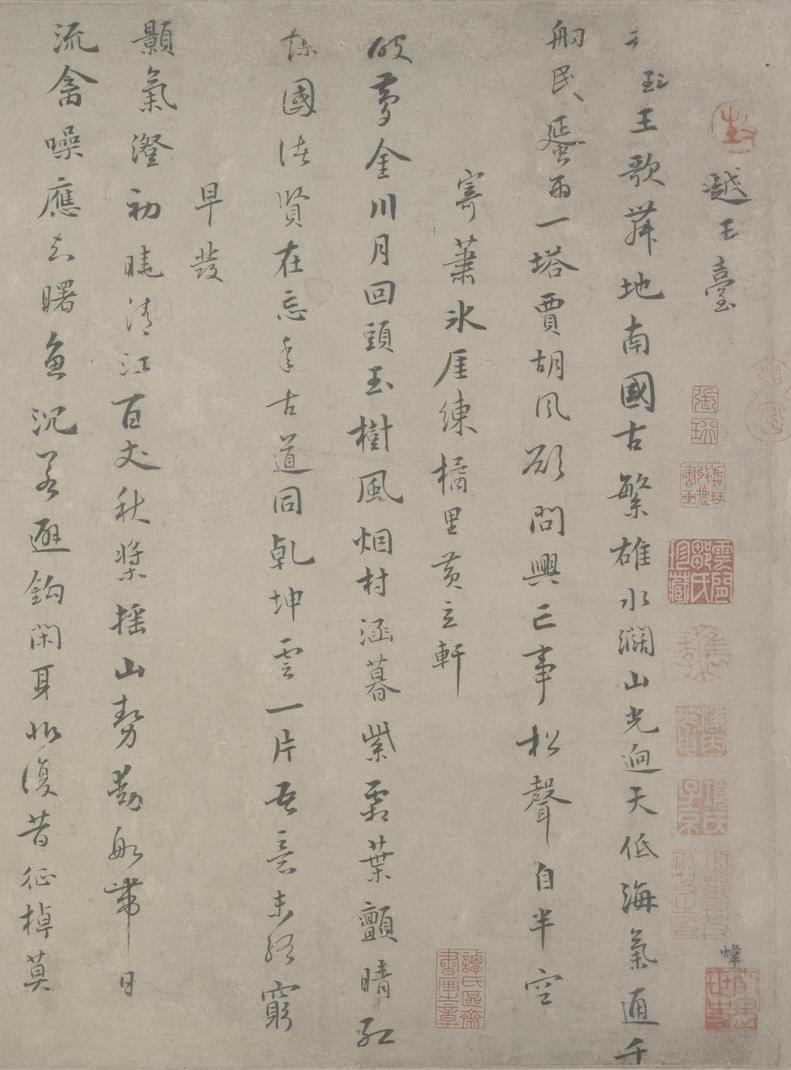 越王臺
王歌舞地南國古繁雄水闊山光迥天低海氣通千
舸民蜑雨一塔賈胡風欲問興亡事松聲自半空
寄蕭冰厓練橘里黃立軒
夢金川月回頭玉樹風烟村涵暮紫霜葉顫晴紅
故國諸賢在忘年古道同乾坤雲一片吾意未終窮
早發
顥氣澄初曉清江百丈秋槳搖山勢動船帶日
流禽噪應知曙魚沉若避鈎閑身非復昔征棹莫
張珩
譚氏區齋書畫之章